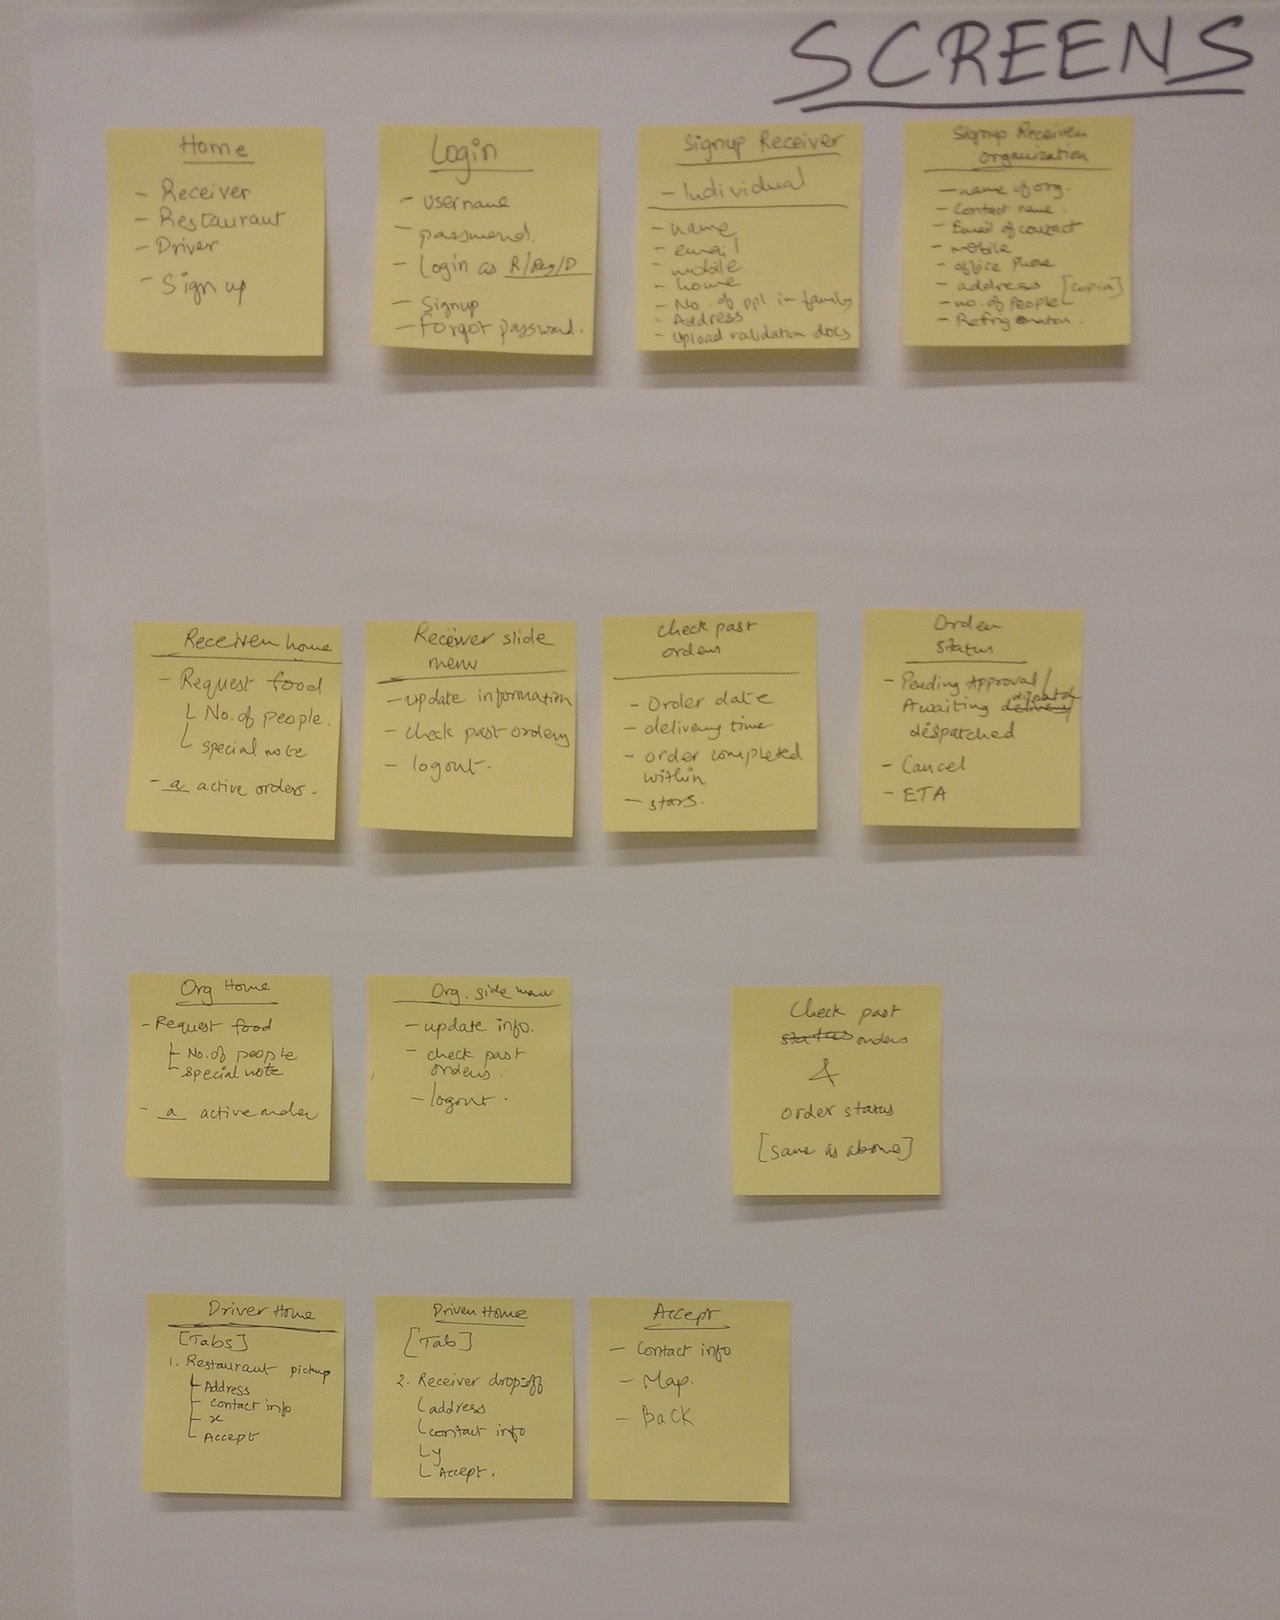 SCREENS
Home
- Receiver
- Restaurant
- Driver
- Sign up
Login
- username
- password.
- Login as R/Reg/D
- Signup
- Forgot password.
Signup Receiver
- Individual
- name
- email
- mobile
- home
- No. of ppl in family
- Address
- Upload validation docs
Signup Receiver
organization
- name of org.
- Contact name.
- Email of contact
- mobile
- office Phone
- address [copia]
- no. of People
Receiver home
- Request food
No. of people.
special note
- a active orders.
Receiver slide
menu
- update information
- check past orders
- logout.
check past
orders
- Order date
- delivery time
- order completed
within
- stars.
Order
status
- Pending Approval/
Awaiting delivery dispatch/
dispatched
- Cancel
- ETA
Org Home
- Request food
- No. of people
special note
- a active order
Org. side menu
- update info.
- check past
orders.
- logout.
Check past
status orders
&
order status
[same as above]
Driver Home
[Tabs]
1. Restaurant pickup
Address
contact info
x
Accept
Driver Home
[Tab]
2. Receiver drop-off
address
contact info
y
Accept.
Accept
- Contact info
- Map.
- Back